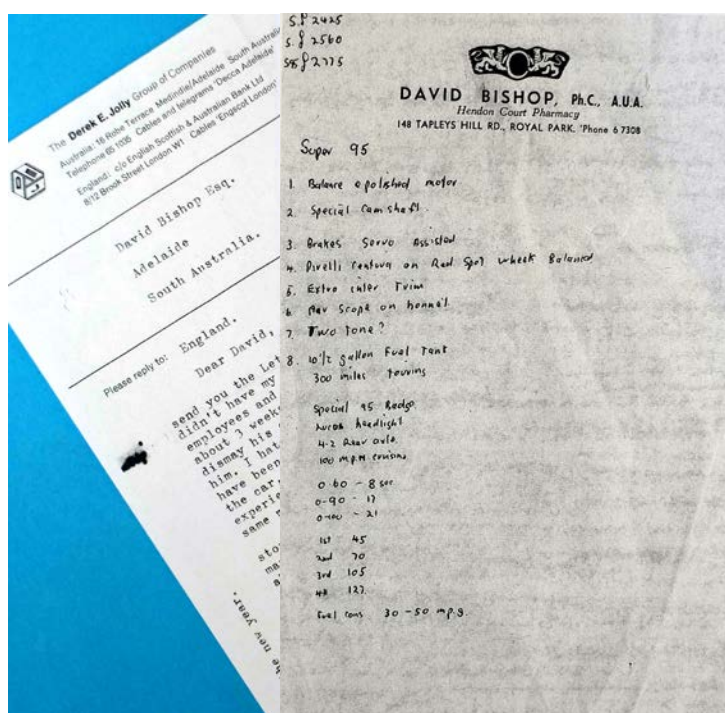 The Derek E. Jolly Group of Companies
Australia: 16 Robe Terrace Medindie/Adelaide South Australia
Telephone 65 1035 Cables and telegrams 'Decca Adelaide'
England: c/o English Scottish & Australian Bank Ltd
8/12 Brook Street London W1 Cables 'Engscot London'
David Bishop Esq.
Adelaide
South Australia.
Please reply to: England.
Dear David,
send you the Let
didn't have my
employees and
about 3 week
dismay his
him. I hat
have been
the car.
experie
same
sto
ma
he new year.
S.P 2425
2560
2775
DAVID BISHOP, Ph.C., A.U.A.
Hendon Court Pharmacy
148 TAPLEYS HILL RD., ROYAL PARK. 'Phone 6 7308
Super 95
1. Balance & polished motor
2. Special Camshaft.
3. Brakes Servo Assisted
4. Pirelli on Red Spot wheel Balanced
5. Extra Trim
6. Scope on
7. Two Tone?
8. 10 1/2 gallon Fuel Tank
300 miles touring
Special 95 Badge.
headlight
4.2 Rear axle.
100 m.p.h cruising
0-60 - 8 sec
0-90 - 17
0-100 - 21
1st 45
2nd 70
3rd 105
4th 127.
Fuel cons 30-50 m.p.g.